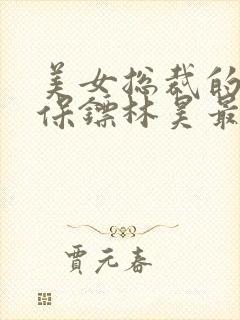 美女总裁的
保镖林昊最
贾元春